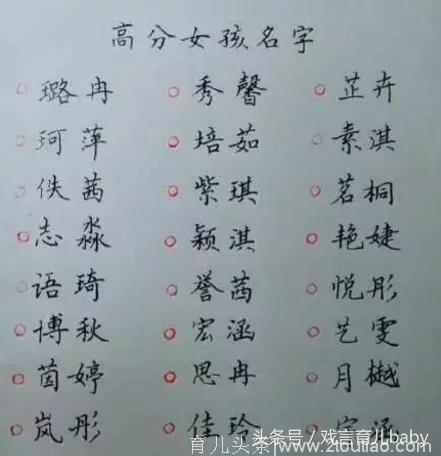 高分女孩名字
璐冉 秀馨 芷卉
珂萍 培茹 素淇
佚茜 紫琪 茗桐
志淼 颖淇 艳婕
语琦 誉茜 悦彤
博秋 宏涵 艺雯
茵婷 思冉 月樾
岚彤 佳玲
头条号／戏言育儿baby
育儿头条